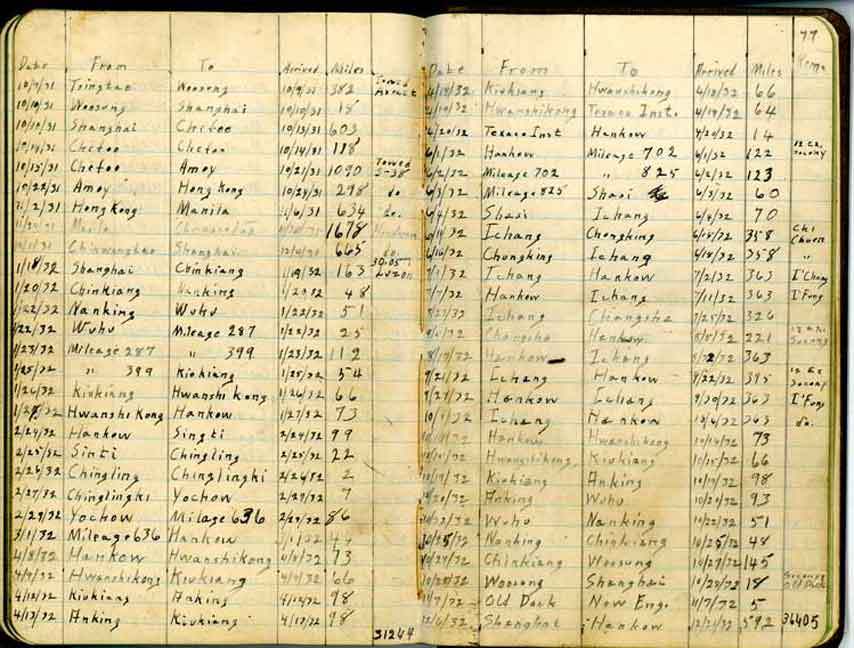 Date From To Arrived Miles
10/9/31 Tsingtao Woosung 10/9/31 382
10/10/31 Woosung Shanghai 10/10/31 18
10/10/31 Shanghai Chefoo 10/13/31 603
10/14/31 Chefoo Chefoo 10/14/31 118
10/15/31 Chefoo Amoy 10/21/31 1090 Towed S-38
10/22/31 Amoy Hong Kong 10/24/31 298 do
11/2/31 Hong Kong Manila 11/6/31 634 do.
Manila 1678
Chinwangtao Shanghai 665 do
1/18/32 Shanghai Chinkiang 1/19/32 163 Luzon
1/20/32 Chinkiang Nanking 1/20/32 48
1/22/32 Nanking Wuhu 1/22/32 51
1/22/32 Wuhu Mileage 287 1/22/32 25
1/23/32 Mileage 287 " 399 1/23/32 112
1/25/32 " 399 Kiukiang 1/25/32 54
1/26/32 Kiukiang Hwanshi Kong 1/26/32 66
1/27/32 Hwanshi Kong Hankow 1/27/32 73
2/24/32 Hankow Singti 2/24/32 99
2/25/32 Sinti Chingling 2/25/32 22
2/26/32 Chingling Chinglingki 2/26/32 2
2/27/32 Chinglingki Yochow 2/27/32 7
2/29/32 Yochow Milage 636 2/29/32 86
3/1/32 Mileage 636 Hankow
4/8/32 Hankow Hwanshikong 4/8/32 73
4/9/32 Hwanshikong Kiukiang 4/9/32 66
4/12/32 Kiukiang Anking 4/12/32 98
4/13/32 Anking Kiukiang 4/13/32 98
31244
77
Date From To Arrived Miles
4/18/32 Kiukiang Hwanshikong 4/18/32 66
4/19/32 Hwanshikong Texaco Inst. 4/19/32 64
4/20/32 Texaco Inst Hankow 4/20/32 14
6/1/32 Hankow Mileage 702 6/1/32 122
6/2/32 Mileage 702 " 825 6/2/32 123
6/3/32 Mileage 825 Shasi 6/3/32 60
6/4/32 Shasi Ichang 6/4/32 70
6/11/32 Ichang Chongking 6/15/32 358 Chi Chuen
6/16/32 Chungking Ichang 6/18/32 358 "
7/1/32 Ichang Hankow 7/2/32 363 I'Chang
7/7/32 Hankow Ichang 7/11/32 363 I'Fung
Ichang Changsha 7/25/32 326
Changsha Hankow 221
8/19/32 Hankow Ichang 363
9/21/32 Ichang Hankow 9/22/32 395
9/27/32 Hankow Ichang 9/30/32 363 I'Fung
Ichang Hankow 10/6/32 363 do.
Hankow Hwanshikong 73
Hwanshikong Kiukiang 66
Kiukiang Anking 10/19/32 98
10/20/32 Anking Wuhu 10/20/32 93
10/22/32 Wuhu Nanking 10/22/32 51
10/25/32 Nanking Chinkiang 10/25/32 48
10/27/32 Chinkiang Woosung 10/27/32 145
10/28/32 Woosung Shanghai 10/28/32 18
11/7/32 Old Dock New Eng. 11/7/32 5
12/6/32 Shanghai Hankow 592 36405